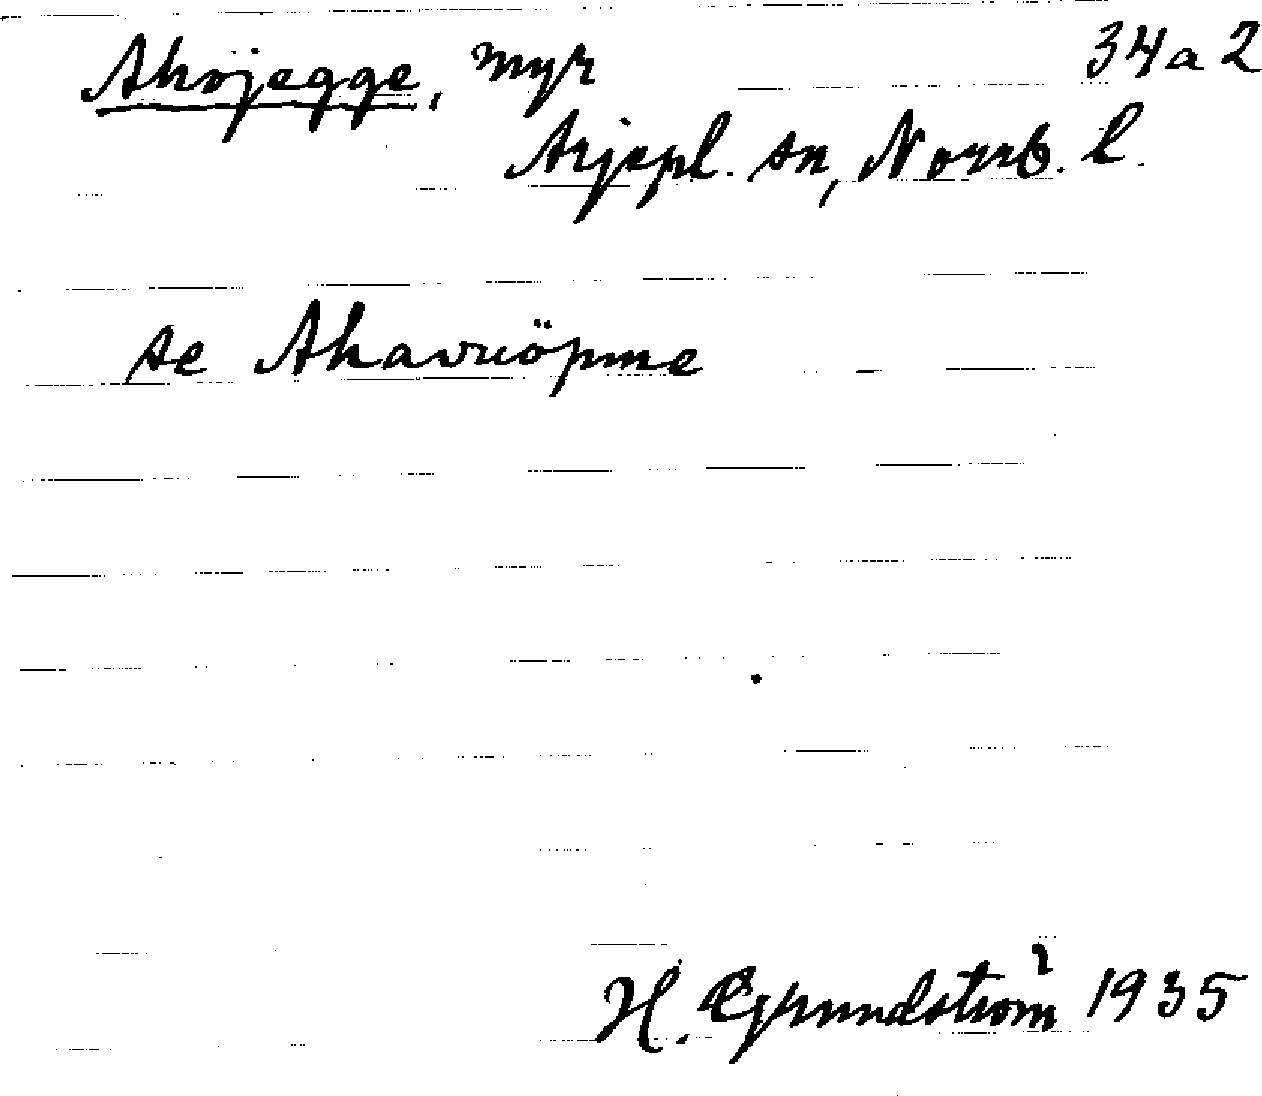 Ahvjegge, myr 34 a 2
Arjepl. sn, Norrb. l.
se Ahavuöpme
H. Grundström 1935